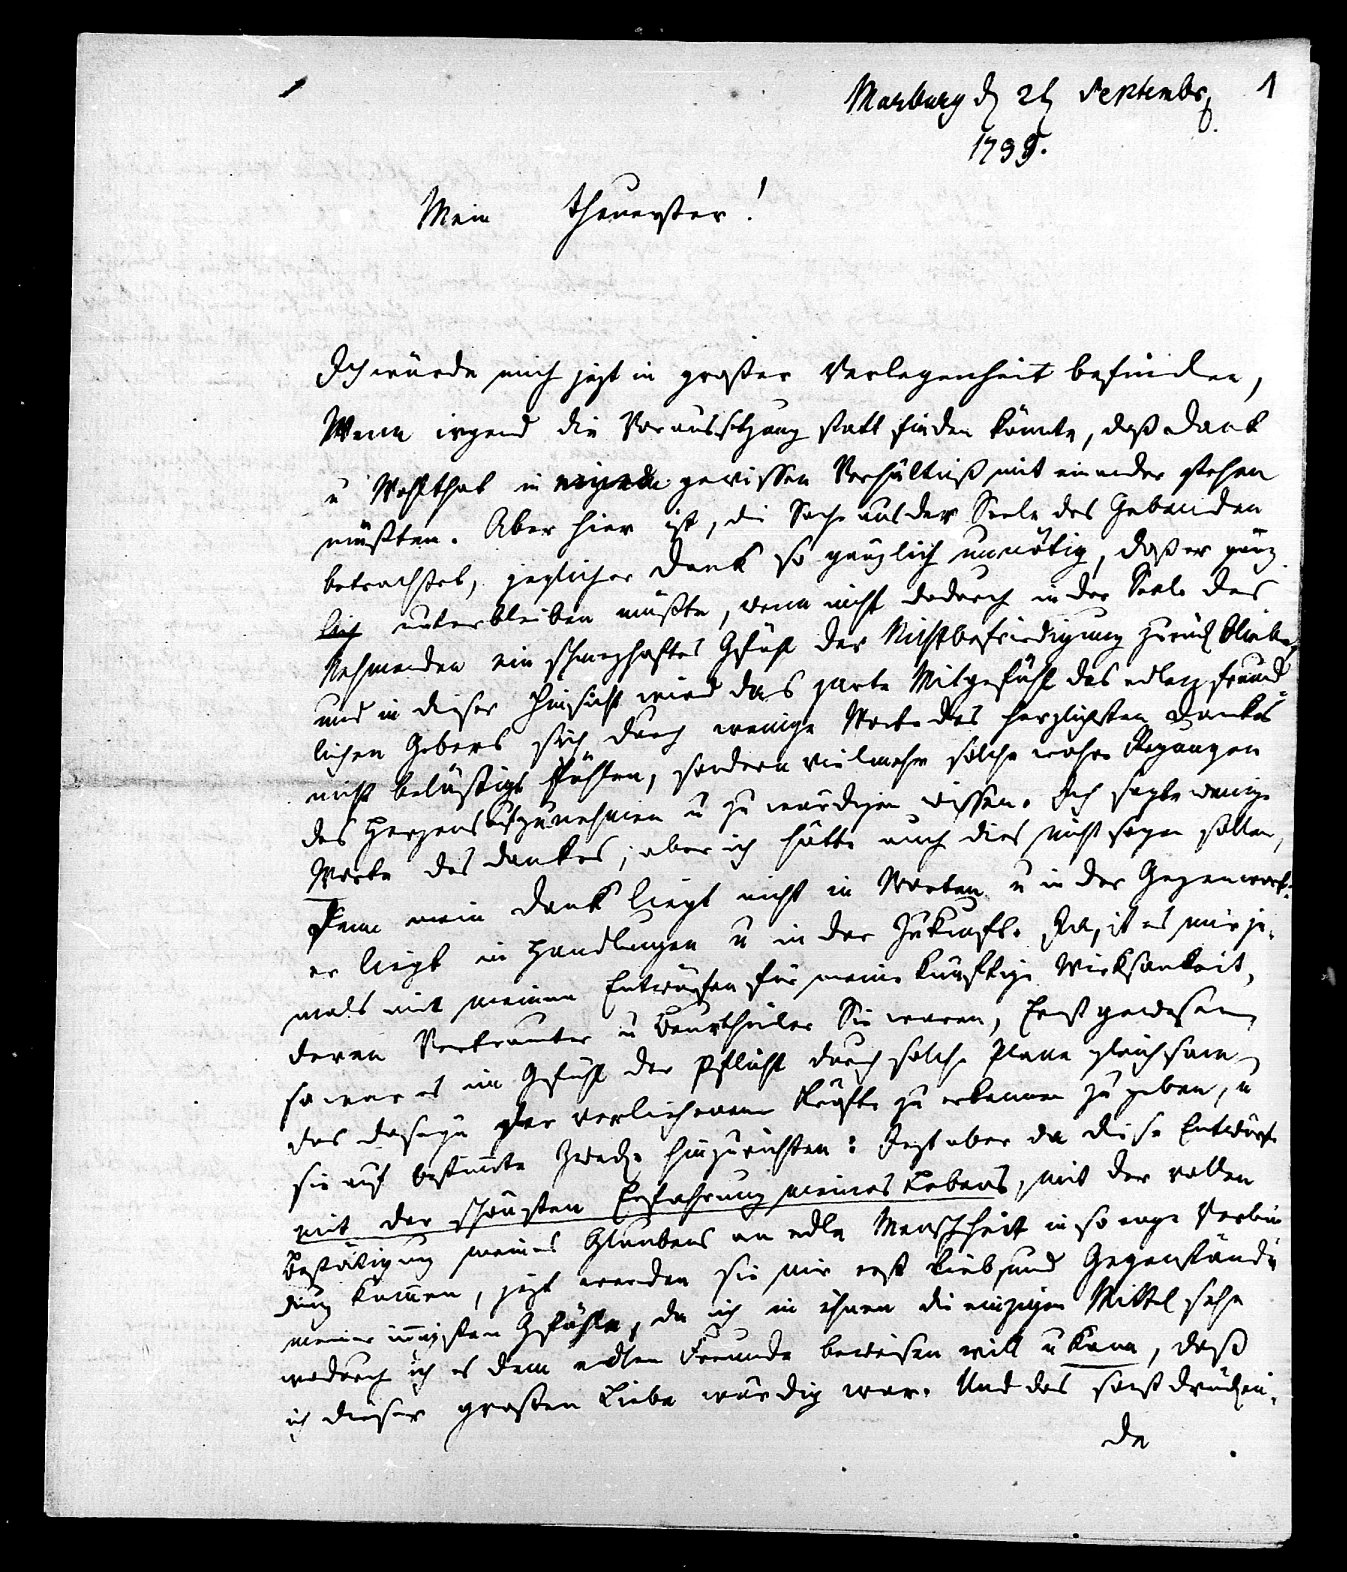 1
Marburg d 24 Septembr
1799.
Mein Theuerster!
Ich würde mich jezt in großer Verlegenheit befinden,
Wenn irgend die Voraussetzung statt finden könnte, daß Dank
u Wohlthat in gewissen Verhältniß mit einander stehen
müßten. Aber hier ist, die Sache aus der Seele des Gebenden
betrachtet, jeglicher Dank so gänzlich unnötig, daß er gänz
lich unterbleiben müßte, wenn nicht dadurch in der Seele des
Nehmenden ein schmerzhaftes Gefühl der Nichtbefriedigung zurück bliebe,
und in dieser Hinsicht wird das zarte Mitgefühl des edlen freund
lichen Gebers sich durch wenige Worte des herzlichsten Dankes
nicht belästigt fühlen, sondern vielmehr solche wahre Regungen
des Herzens aufzunehmen u zu würdigen wissen. Ich sagte wenige
Worte des Dankes; aber ich hätte auch dies nicht sagen sollen,
Denn mein Dank liegt nicht in Worten u in der Gegenwart.
er liegt in Handlungen u in der Zukunft. Ja, ist es mir je-
mals mit meinen Entwürfen für meine künftige Wirksamkeit,
deren Vertrauter u Beurtheiler Sie waren, Ernst gewesen,
so war es im Gefühl der Pflicht durch solche Plane gleichsam
das Daseyn der verliehenen Kräfte zu erkennen zu geben, u
sie auf bestimte Zwecke hinzurichten: Jezt aber da diese Entwürfe
mit der schönsten Erfahrung meines Lebens, mit der vollen
Bestätigung meines Glaubens an edle Menschheit in so enge Verbin
dung kommen, jezt werden sie mir erst Lieb, und Gegenstände
meiner innigsten Gefühle, da ich in ihnen die einzigen Mittel sehe
wodurch ich es dem edlen Freunde beweisen will u kann, daß
ich dieser großen Liebe würdig war. Und das sonst drücken-
de